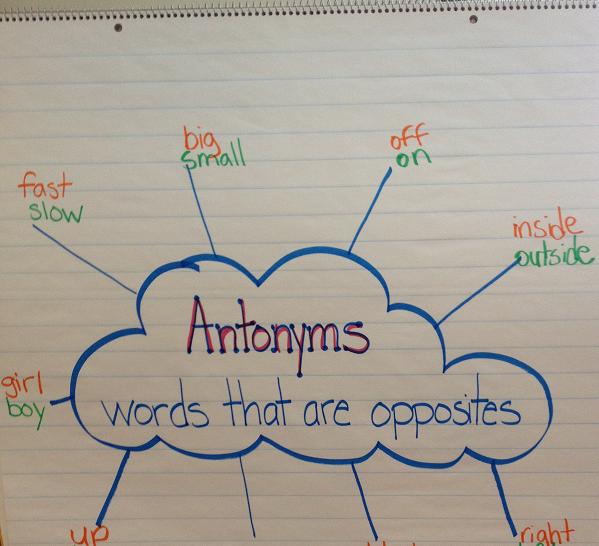 big
small
off
on
fast
slow
inside
outside
Antonyms
girl
boy
words that are opposites
up
right